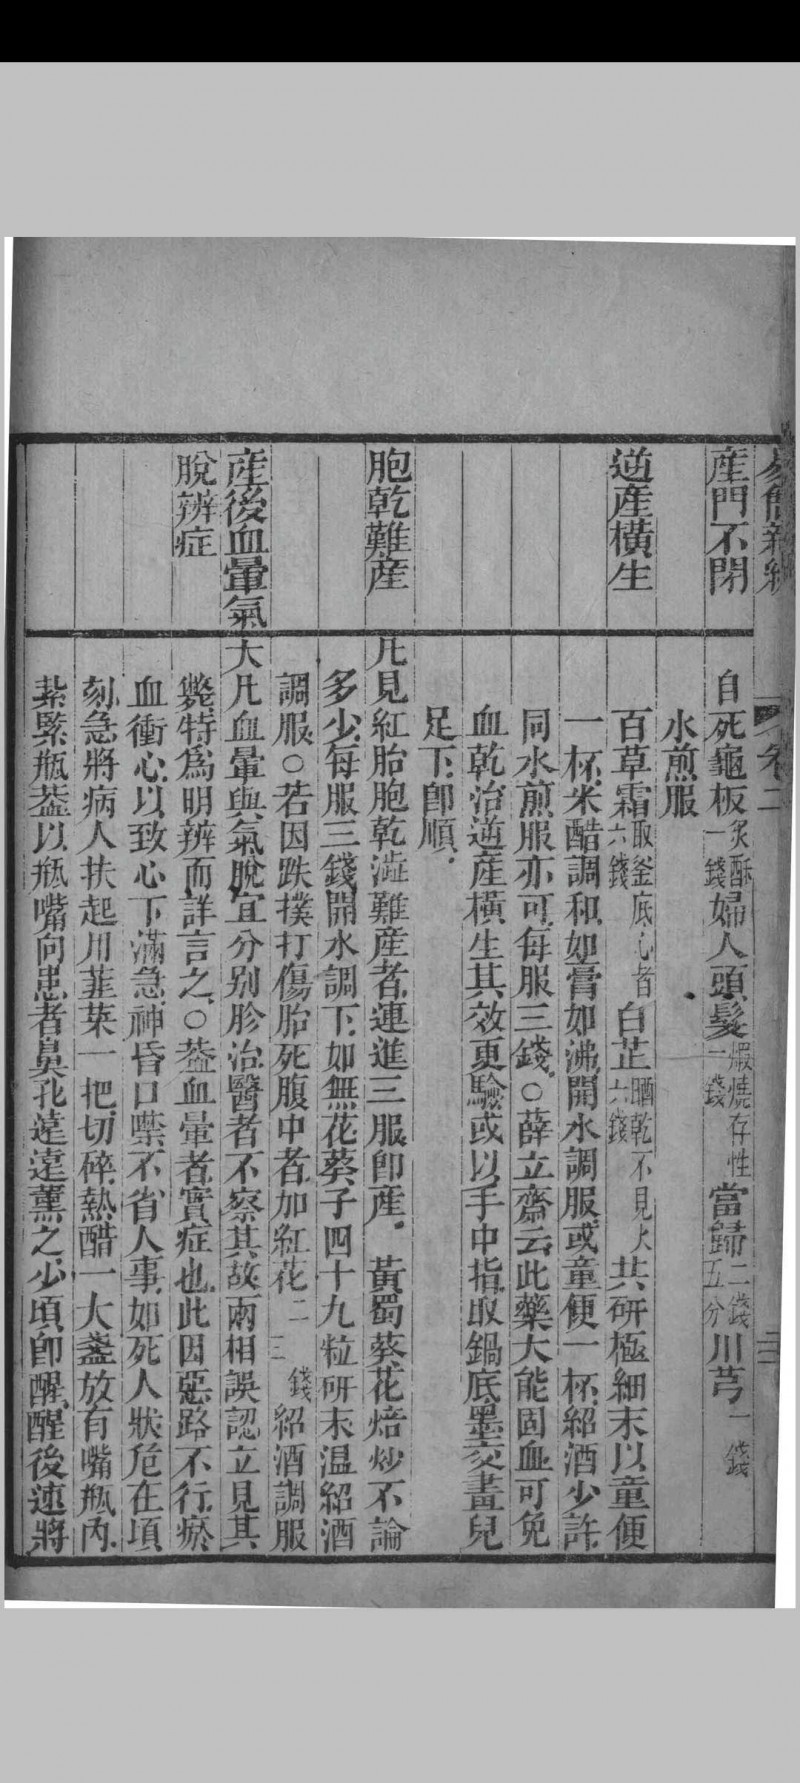 易簡新編
卷二
產門不閉
自死龜板炙酥一錢婦人頭髮煆燒存性一錢當歸二錢五分川芎一錢
水煎服
逆產橫生
百草霜取釜底心者六錢白芷晒乾不見火六錢共研極細末以童便
一杯米醋調和如膏如沸開水調服或童便一杯紹酒少許
同水煎服亦可每服三錢○薛立齋云此藥大能固血可免
血乾治逆產橫生其效更驗或以手中指取鍋底墨交畫兒
足下即順
胞乾難產
凡見紅胎胞乾澁難產者連進三服即產 黃蜀葵花焙炒不論
多少每服三錢開水調下如無花葵子四十九粒研末溫紹酒
調服○若因跌撲打傷胎死腹中者加紅花二三錢紹酒調服
產後血暈氣
脫辨症
大凡血暈與氣脫宜分别胗治醫者不察其故兩相誤認立見其
斃特爲明辨而詳言之○葢血暈者實症也此因惡路不行瘀
血衝心以致心下滿急神昏口噤不省人事如死人狀危在頃
刻急將病人扶起用韮菜一把切碎熱醋一大盞放有嘴瓶內
紮緊瓶葢以瓶嘴向患者鼻孔遠遠薰之少頃即醒醒後速將